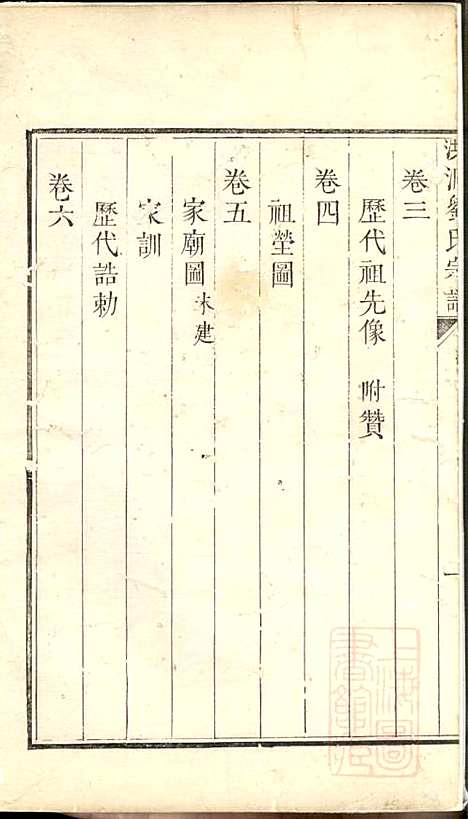 劉氏宗譜
卷三
歷代祖先像 附贊
卷四
祖塋圖
卷五
家廟圖 未建
家訓
歷代誥勅
卷六
一
上海圖書館藏